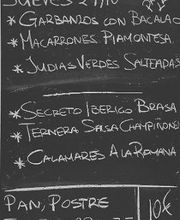 JUEVES 27/10
* GARBANZOS CON BACALAO
* MACARRONES PIAMONTESA
* JUDIAS VERDES SALTEADAS
* SECRETO IBERICO BRASA
* TERNERA SALSA CHAMPIÑONES
* CALAMARES A LA ROMANA
PAN, POSTRE
10€